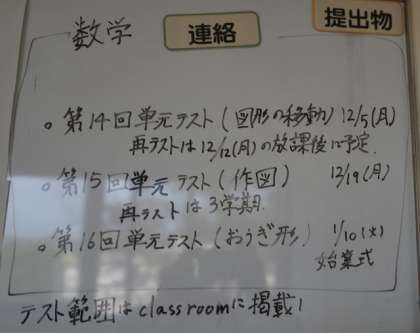 数学 連絡 提出物
。第14回単元テスト(図形の移動) 12/5(月)
再テストは12/12(月)の放課後に予定.
。第15回単元テスト(作図) 12/19(月)
再テストは3学期.
。第16回単元テスト(おうぎ形) 1/10(火)
始業式
テスト範囲はclassroomに掲載!